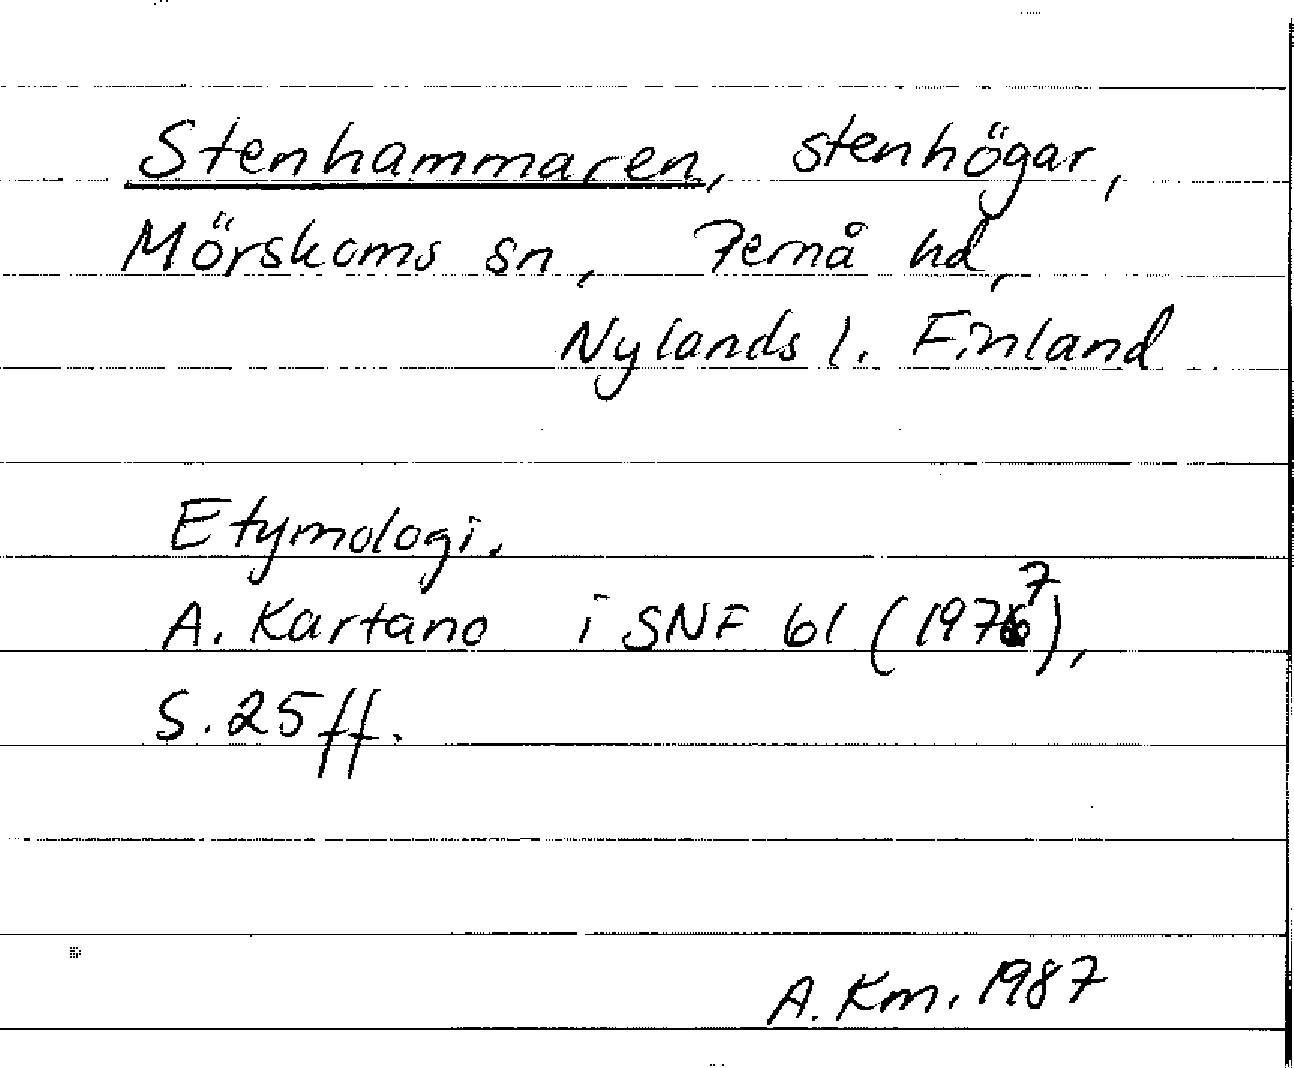 Stenhammaren, stenhögar,
Mörskoms sn, Pernå hd,
Nylands l. Finland
Etymologi.
A. Kartano i SNF 61 (1977),
S. 25 ff.
A. Km. 1987